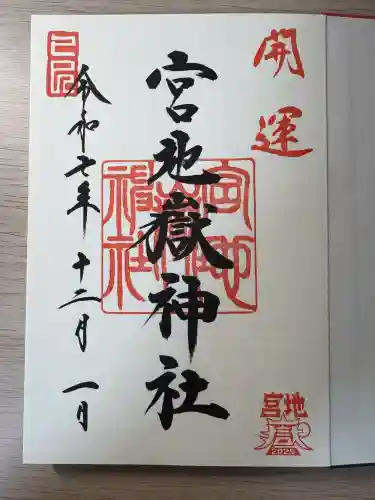 開運
宮地嶽神社
宮地嶽神社
令和七年 十二月 一日
宮地
嶽
2025